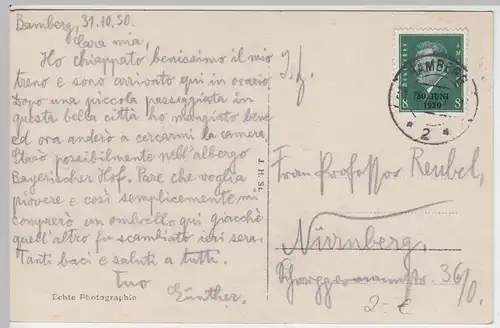 Bamberg, 31.10.30.
Cara mia,
Ho chiappato benissimo il mio
treno e sono arrivato qui in orario.
Dopo una piccola passeggiata in
questa bella città ho mangiato bene
ed ora anderò a cercarmi la camera.
possibilmente nell'albergo
Bayerischer Hof. Pare che voglia
piovere e così semplicemente mi
comprerò un ombrello qui giacchè
quell'altro fu scambiato ieri sera.
Tanti baci e saluti a tutti.
Tuo
Günther.
Echte Photographie
J. H. St.
BAMBERG
30 JUNI
1930
* 2 *
8 8
Frau Professor Reubel,
Nürnberg,
36/0.
2.- €